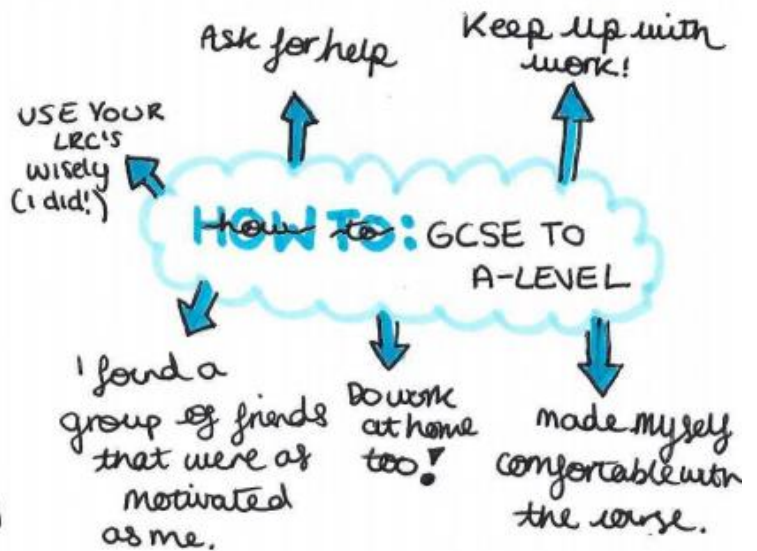 Ask for help
Keep up with
work!
USE YOUR
LRC'S
wisely
(I did!)
HOW TO: GCSE TO
how to
A-LEVEL
I found a
group of friends
that were as
motivated
as me.
Do work
at home
too!
made myself
comfortable with
the course.